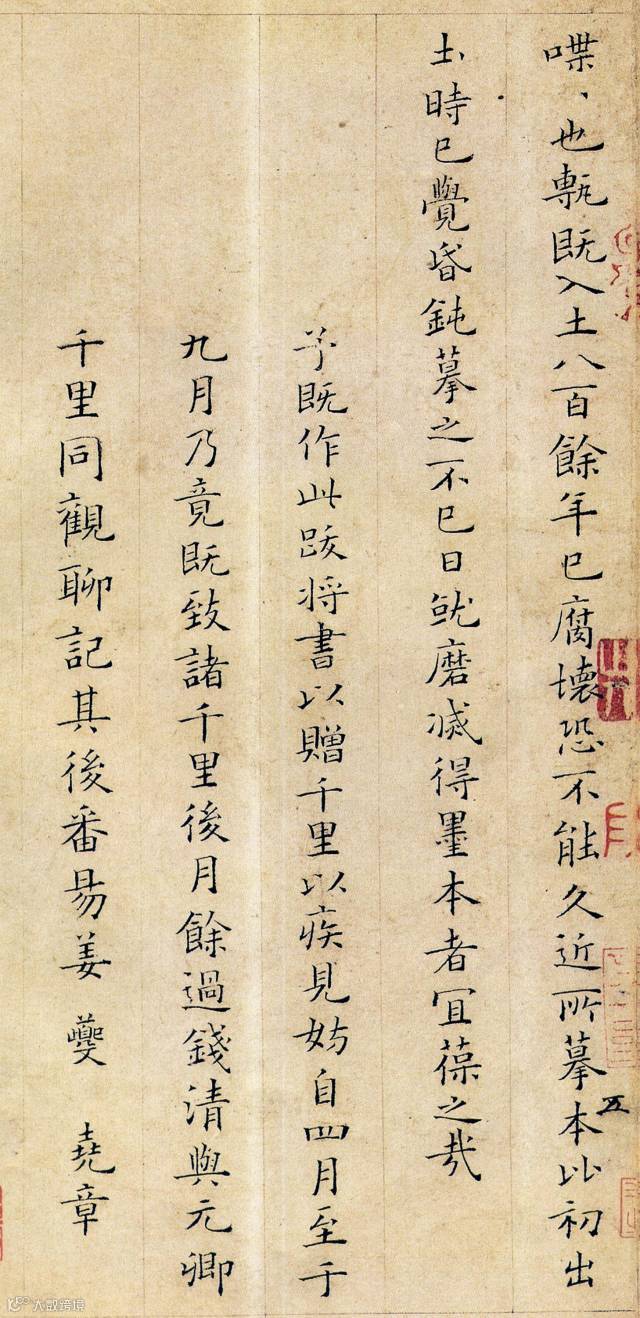 喋、也甎既入土八百餘年已腐壞恐不能久近所摹本比初出
土時已覺昏鈍摹之不已日就磨滅得墨本者宜葆之哉
予既作此跋將書以贈千里以疾見妨自四月至于
九月乃竟既致諸千里後月餘過錢清與元卿
千里同觀聊記其後番昜姜夔堯章
五
大数跨境